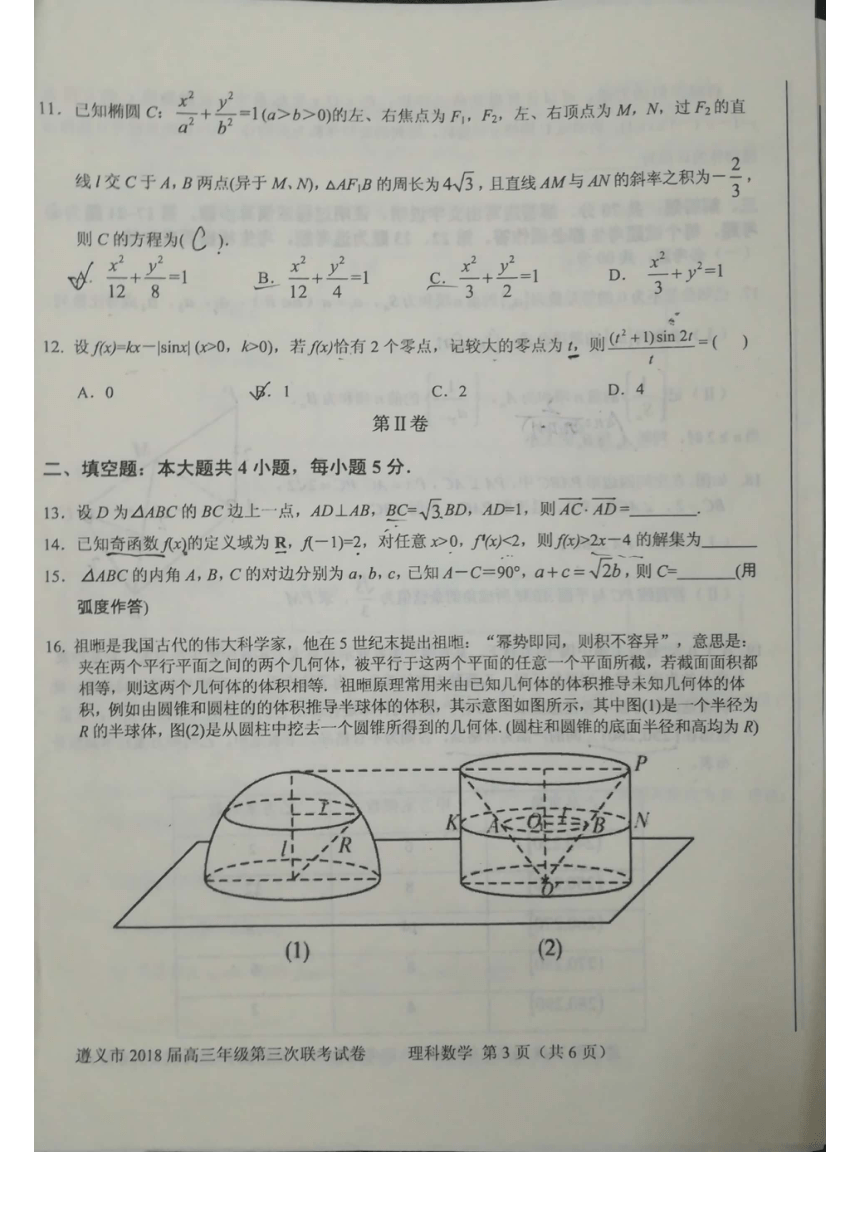 11. 已知椭圆 C: x²/a²+y²/b²=1(a>b>0)的左、右焦点为 F₁, F₂, 左、右顶点为 M, N, 过 F₂的直
线 l 交 C 于 A, B 两点(异于 M、N), △AF₁B 的周长为4√3, 且直线 AM 与 AN 的斜率之积为−2/3,
则 C 的方程为( C ).
A. x²/12+y²/8=1 B. x²/12+y²/4=1 C. x²/3+y²/2=1 D. x²/3+y²=1
12. 设 f(x)=kx−|sinx| (x>0, k>0), 若 f(x)恰有 2 个零点, 记较大的零点为 t, 则 (t²+1)sin 2t/t =( )
A. 0 B. 1 C. 2 D. 4
第Ⅱ卷
二、填空题: 本大题共 4 小题, 每小题 5 分.
13. 设 D 为△ABC 的 BC 边上一点, AD⊥AB, BC=√3BD, AD=1, 则 AC·AD=______.
14. 已知奇函数 f(x)的定义域为 R, f(−1)=2, 对任意 x>0, f′(x)<2, 则 f(x)>2x−4 的解集为______
15. △ABC 的内角 A, B, C 的对边分别为 a, b, c, 已知 A−C=90°, a+c=√2b, 则 C=______(用
弧度作答)
16. 祖暅是我国古代的伟大科学家, 他在 5 世纪末提出祖暅: “幂势即同, 则积不容异”, 意思是:
夹在两个平行平面之间的两个几何体, 被平行于这两个平面的任意一个平面所截, 若截面面积都
相等, 则这两个几何体的体积相等. 祖暅原理常用来由已知几何体的体积推导未知几何体的体
积, 例如由圆锥和圆柱的的体积推导半球体的体积, 其示意图如图所示, 其中图(1)是一个半径为
R 的半球体, 图(2)是从圆柱中挖去一个圆锥所得到的几何体. (圆柱和圆锥的底面半径和高均为 R)
P
r K A O₁ l B N
l R
O′
(1) (2)
遵义市 2018 届高三年级第三次联考试卷 理科数学 第 3 页 (共 6 页)